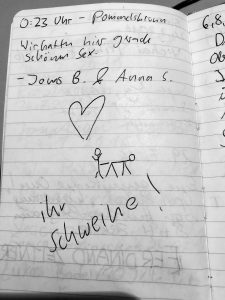 0:23 Uhr - Pommelsbrunn
Wir hatten hier gerade
schönen Sex.
- Jonas B. & Anna S.
ihr
schweine!
6,8,
D
Ob